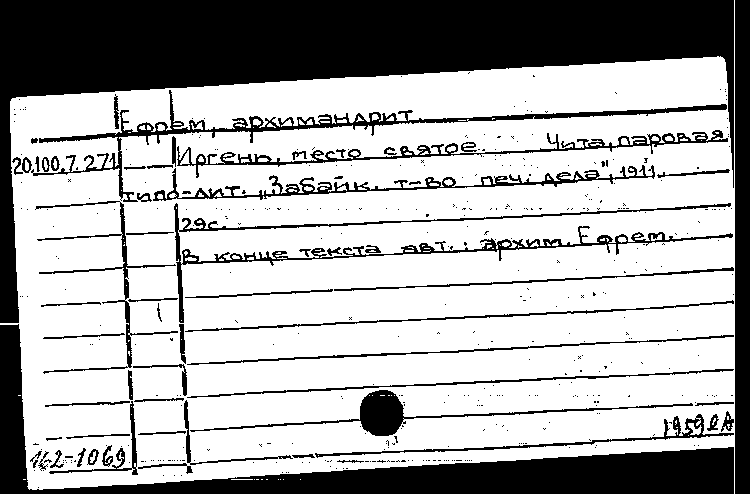 Ефрем, архимандрит.
20.100.7.271 Иргень, место святое. Чита, паровая
типо-лит. „Забайк. т-во печ. дела", 1911.
29с.
В конце текста авт.: архим. Ефрем.
1959
162-1069